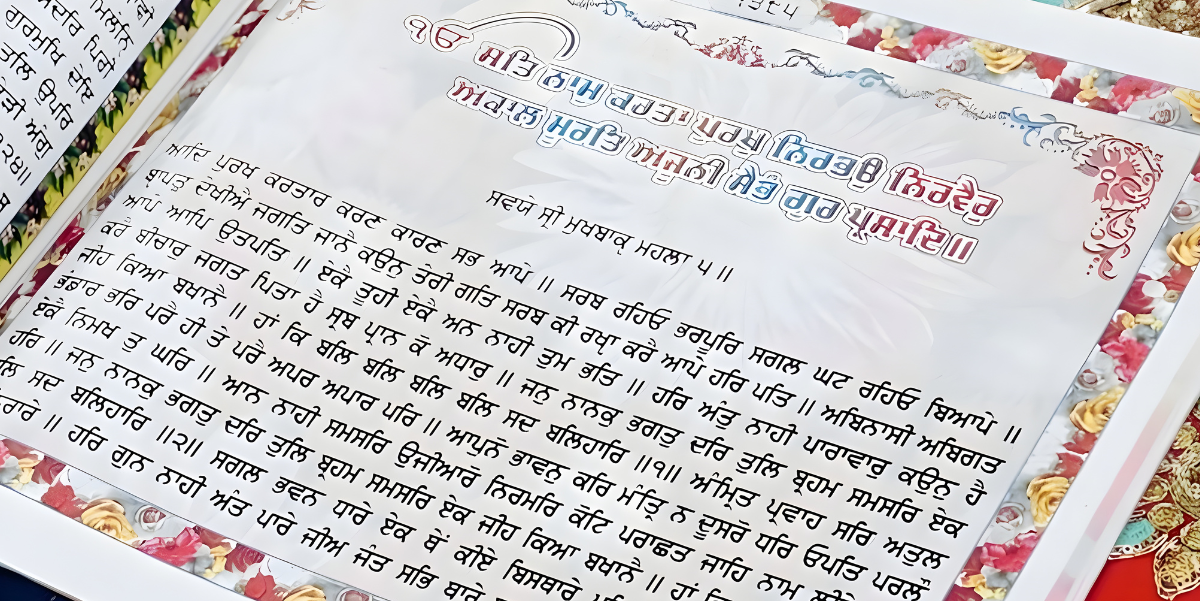 ੧੩੮੫
ੴ ਸਤਿ ਨਾਮੁ ਕਰਤਾ ਪੁਰਖੁ ਨਿਰਭਉ ਨਿਰਵੈਰੁ
ਅਕਾਲ ਮੂਰਤਿ ਅਜੂਨੀ ਸੈਭੰ ਗੁਰ ਪ੍ਰਸਾਦਿ॥
ਸਵਯੇ ਸ੍ਰੀ ਮੁਖਬਾਕ੍ਯ ਮਹਲਾ ੫॥
ਆਦਿ ਪੁਰਖ ਕਰਤਾਰ ਕਰਣ ਕਾਰਣ ਸਭ ਆਪੇ ॥ ਸਰਬ ਰਹਿਓ ਭਰਪੂਰਿ ਸਗਲ ਘਟ ਰਹਿਓ ਬਿਆਪੇ ॥
ਬ੍ਯਾਪਤੁ ਦੇਖੀਐ ਜਗਤਿ ਜਾਨੈ ਕਉਨੁ ਤੇਰੀ ਗਤਿ ਸਰਬ ਕੀ ਰਖ੍ਯਾ ਕਰੈ ਆਪੇ ਹਰਿ ਪਤਿ ॥ ਅਬਿਨਾਸੀ ਅਬਿਗਤ
ਆਪੇ ਆਪਿ ਉਤਪਤਿ ॥ ਏਕੈ ਤੂਹੀ ਏਕੈ ਅਨ ਨਾਹੀ ਤੁਮ ਭਤਿ ॥ ਹਰਿ ਅੰਤੁ ਨਾਹੀ ਪਾਰਾਵਾਰੁ ਕਉਨੁ ਹੈ
ਕਰੈ ਬੀਚਾਰੁ ਜਗਤ ਪਿਤਾ ਹੈ ਸ੍ਰਬ ਪ੍ਰਾਨ ਕੋ ਅਧਾਰੁ ॥ ਜਨੁ ਨਾਨਕੁ ਭਗਤੁ ਦਰਿ ਤੁਲਿ ਬ੍ਰਹਮ ਸਮਸਰਿ ਏਕ
ਜੀਹ ਕਿਆ ਬਖਾਨੈ ॥ ਹਾਂ ਕਿ ਬਲਿ ਬਲਿ ਬਲਿ ਬਲਿ ਸਦ ਬਲਿਹਾਰਿ ॥੧॥ ਅੰਮ੍ਰਿਤ ਪ੍ਰਵਾਹ ਸਰਿ ਅਤੁਲ
ਭੰਡਾਰ ਭਰਿ ਪਰੈ ਹੀ ਤੇ ਪਰੈ ਅਪਰ ਅਪਾਰ ਪਰਿ ॥ ਆਪੁਨੋ ਭਾਵਨੁ ਕਰਿ ਮੰਤ੍ਰਿ ਨ ਦੂਸਰੋ ਧਰਿ ਓਪਤਿ ਪਰਲੌ
ਏਕੈ ਨਿਮਖ ਤੁ ਘਰਿ ॥ ਆਨ ਨਾਹੀ ਸਮਸਰਿ ਉਜੀਆਰੋ ਨਿਰਮਰਿ ਕੋਟਿ ਪਰਾਛਤ ਜਾਹਿ ਨਾਮ ਲੀਏ
ਹਰਿ ॥ ਜਨੁ ਨਾਨਕੁ ਭਗਤੁ ਦਰਿ ਤੁਲਿ ਬ੍ਰਹਮ ਸਮਸਰਿ ਏਕ ਜੀਹ ਕਿਆ ਬਖਾਨੈ ॥ ਹਾਂ ਕਿ
ਸਦ ਬਲਿਹਾਰਿ ॥੨॥ ਸਗਲ ਭਵਨ ਧਾਰੇ ਏਕ ਥੇਂ ਕੀਏ ਬਿਸਥਾਰੇ
॥ ਹਰਿ ਗੁਨ ਨਾਹੀ ਅੰਤ ਪਾਰੇ ਜੀਅ ਜੰਤ ਸਭਿ ਥਾਰੇ